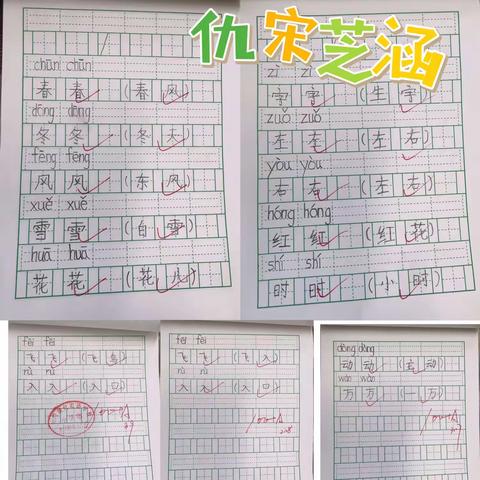 仇宋芝涵
chūn chūn
春 春 (春 风)
dōng dōng
冬 冬 (冬 天)
fēng fēng
风 风 (东 风)
xuě xuě
雪 雪 (白 雪)
huā huā
花 花 (花 儿)
zì zì
字 字 (生 字)
zuǒ zuǒ
左 左 (左 右)
yòu yòu
右 右 (左 右)
hóng hóng
红 红 (红 花)
shí shí
时 时 (小 时)
fēi fēi
飞 飞 (飞 鸟)
rù rù
入 入 (入 口)
fēi fēi
飞 飞 (飞 入)
rù rù
入 入 (入 口)
dòng dòng
动 动 (主 动)
wàn wàn
万 万 (一 万)